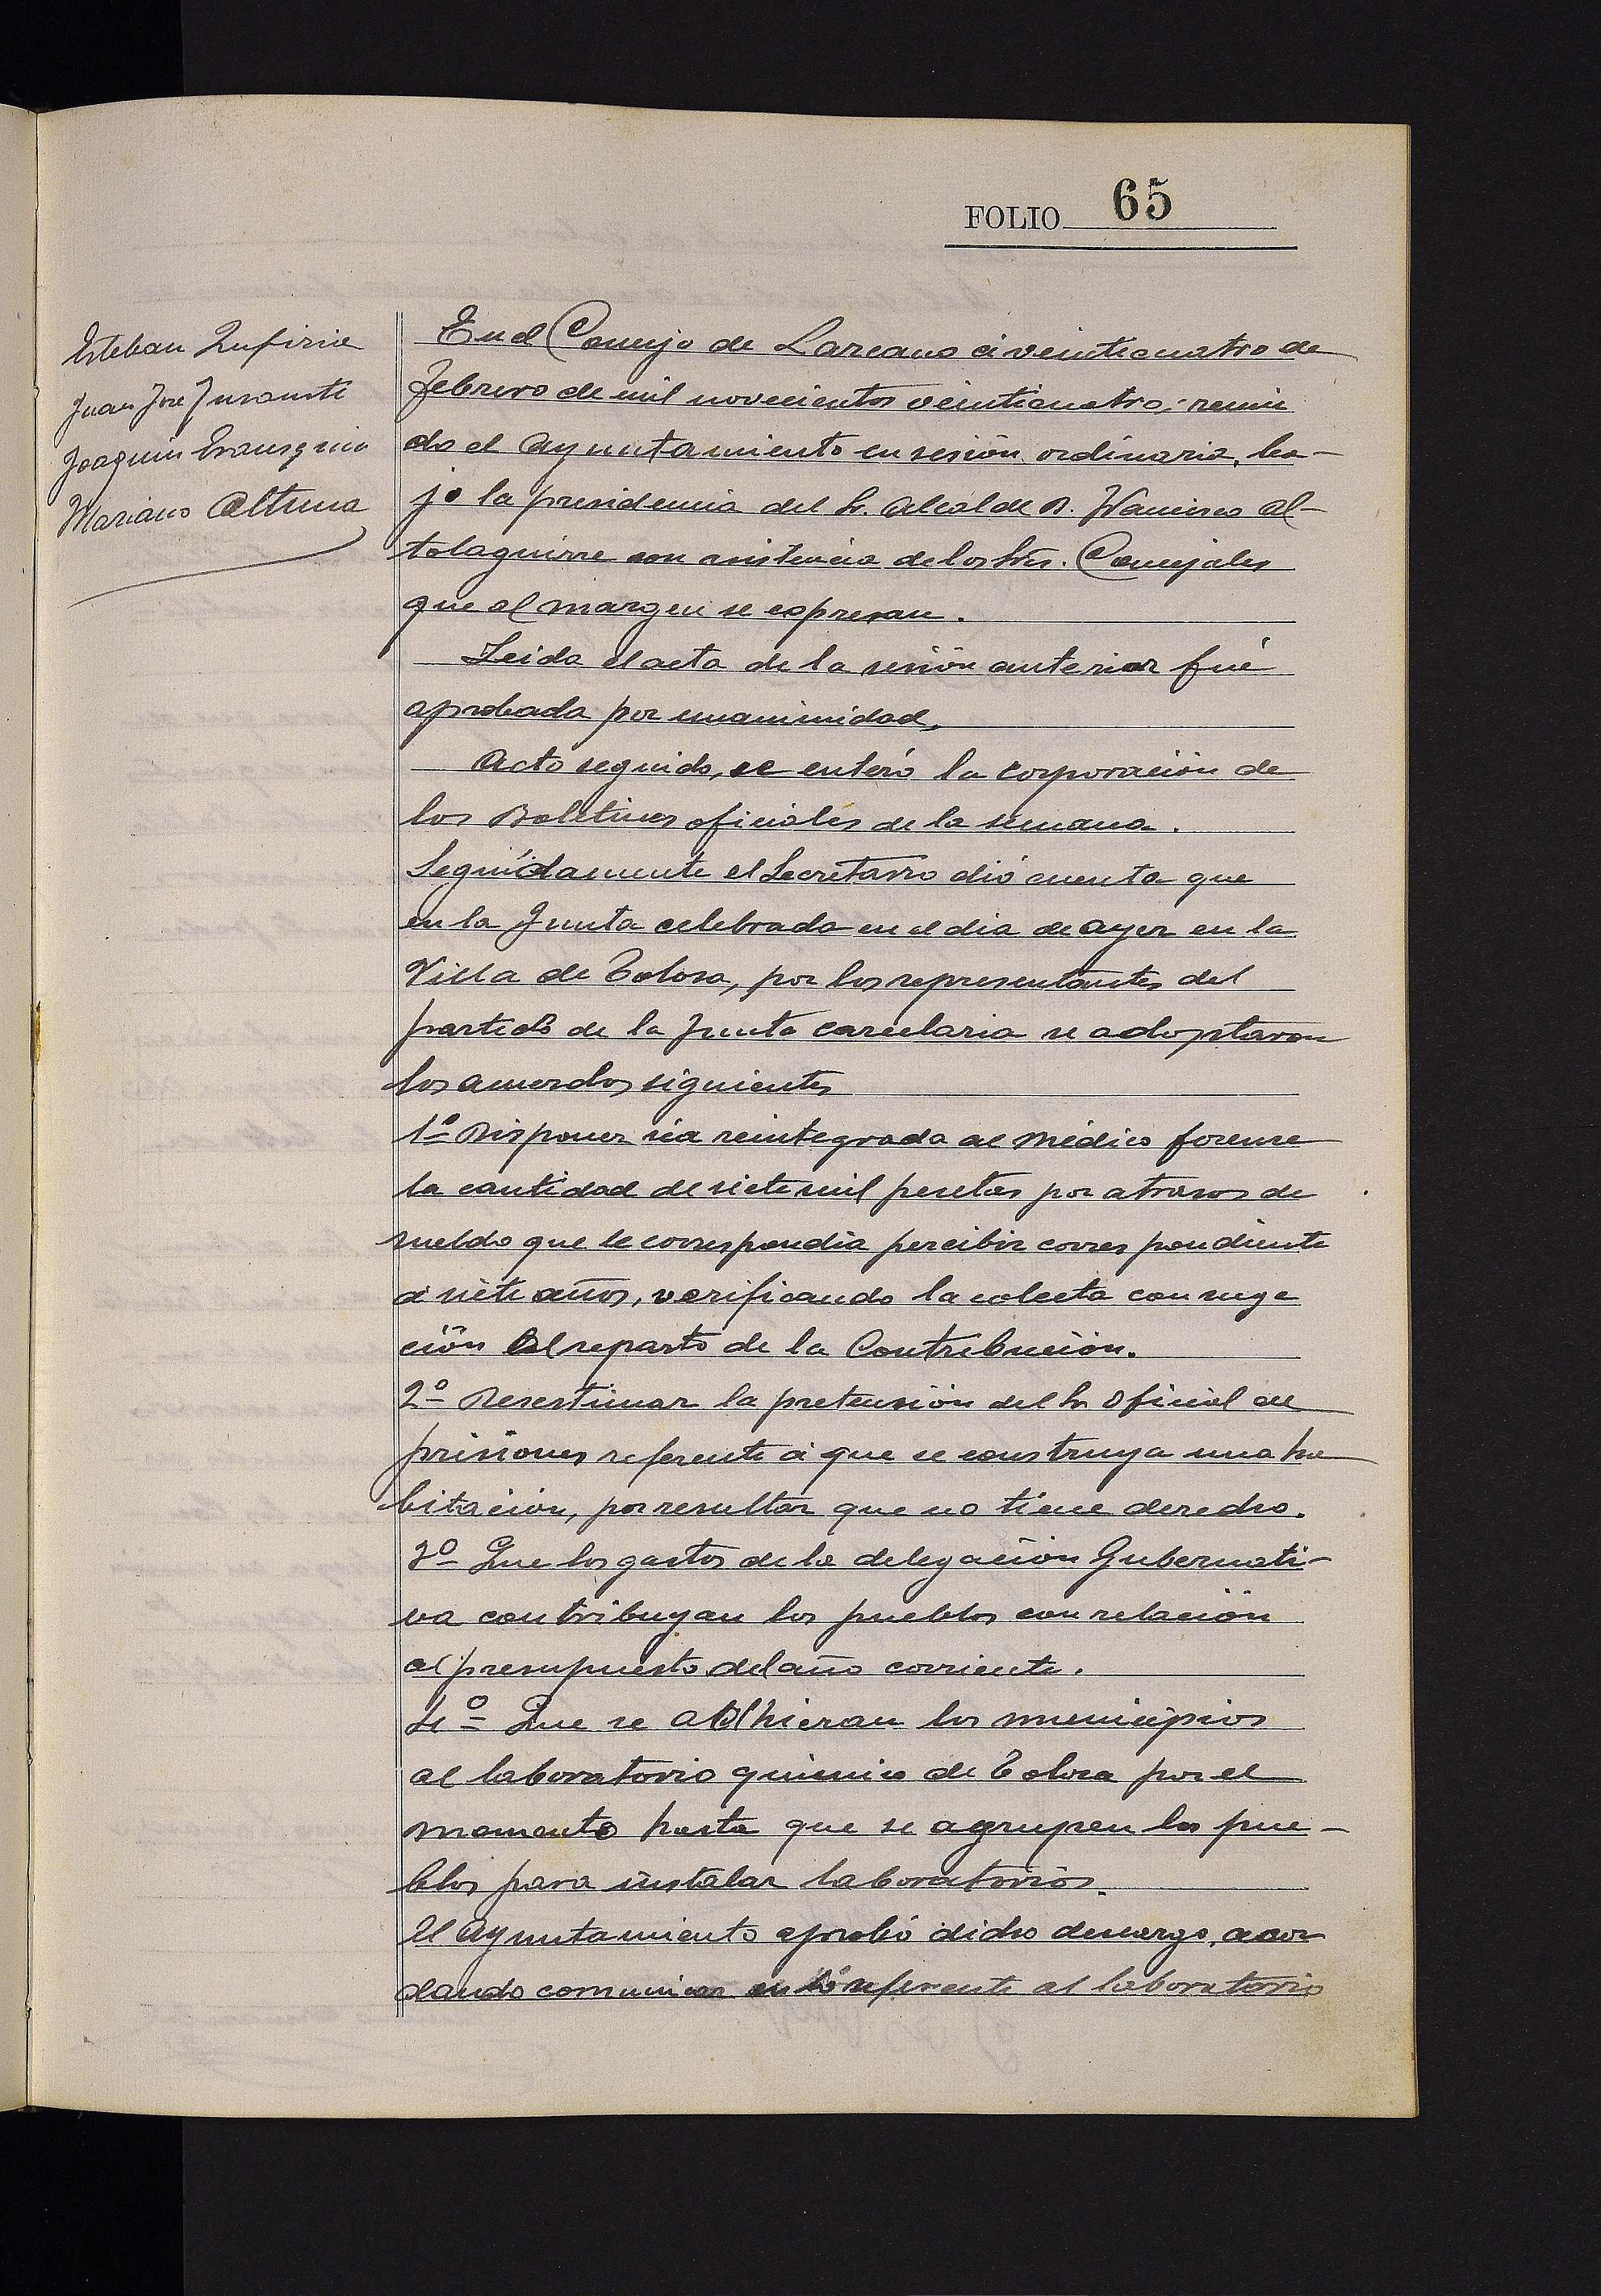 FOLIO 65
Esteban Zufiria
Juan José Insausti
Joaquin Erausquin
Mariano Altuna
En el Concejo de Lazcano á veinticuatro de
Febrero de mil novecientos veinticuatro; reuni
do el Ayuntamiento en sesión ordinaria, ba-
jo la presidencia del Sr. Alcalde D. Francisco Al-
tolaguirre con asistencia de los Sres. Concejales
que al margen se expresan.
Leida el acta de la sesión anterior fué
aprobada por unanimidad,
Acto seguido, se enteró la corporación de
los Boletines oficiales de la semana.
Seguidamente el Secretario dió cuenta que
en la Junta celebrada en el dia de ayer en la
Villa de Tolosa, por los representantes del
partido de la Junta carcelaria se adoptaron
los acuerdos siguientes
1º Disponer sea reintegrada al Médico forense
la cantidad de siete mil pesetas por atrasos de
sueldo que le correspondia percibir correspondiente
á siete años, verificando la colecta con suge
ción al reparto de la Contribución.
2º Desestimar la pretensión del Sr Oficial de
prisiones referente á que se construya una ha
bitación, por resultar que no tiene derecho.
3º Que los gastos de la delegación Gubernati-
va contribuyan los pueblos con relación
al presupuesto del año corriente.
4º Que se adhieran los municipios
al laboratorio quimico de Tolosa por el
momento hasta que se agrupen los pue-
blos para instalar laboratorios.
El Ayuntamiento aprobó dicho descargo, acor
dando comunicar en lo referente al laboratorio